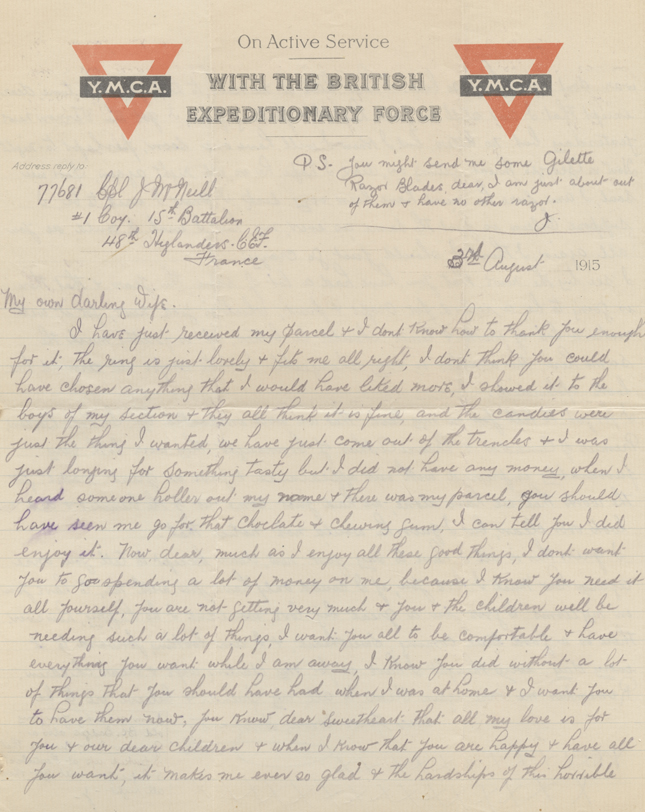 On Active Service
Y.M.C.A.
WITH THE BRITISH
Y.M.C.A.
EXPEDITIONARY FORCE
Address reply to:
77681 Cpl J McNeill
#1 Coy. 15th Battalion
48th Hylanders. C.E.F.
France
PS. You might send me some Gilette
Razor Blades, dear, I am just about out
of them & have no other razor.
J
3rd August 1915
My own darling Wife.
I have just received my parcel & I dont know how to thank you enough
for it, the ring is just lovely & fits me all right, I dont think you could
have chosen anything that I would have liked more, I showed it to the
boys of my section & they all think it is fine, and the candies were
just the thing I wanted, we have just come out of the trenches & I was
just longing for something tasty but I did not have any money, when I
heard someone holler out my name & there was my parcel, you should
have seen me go for that choclate & chewing gum, I can tell you I did
enjoy it. Now dear, much as I enjoy all these good things, I dont want
you to go spending a lot of money on me, because I know you need it
all yourself, you are not getting very much & you & the children will be
needing such a lot of things, I want you all to be comfortable & have
everything you want while I am away, I know you did without a lot
of things that you should have had when I was at home & I want you
to have them now, you know dear sweetheart that all my love is for
you & our dear children & when I know that you are happy & have all
you want, it makes me ever so glad & the hardships of this horrible